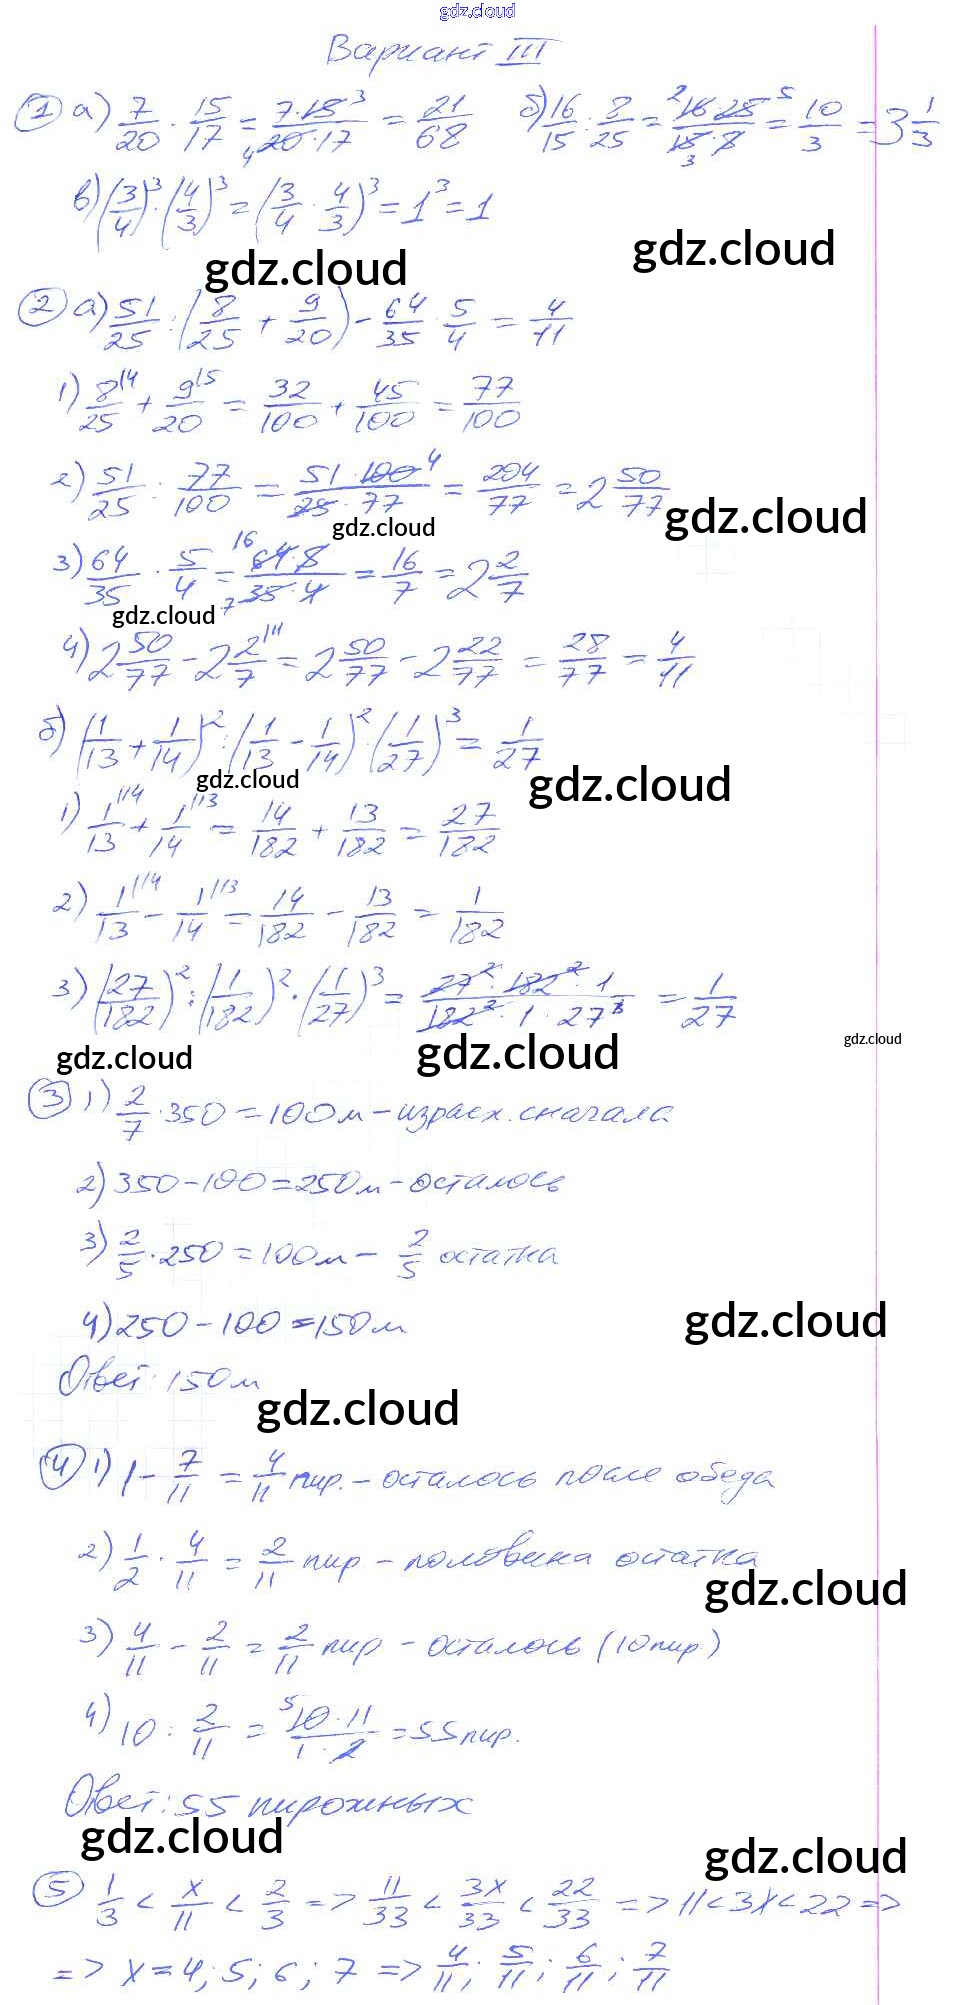 gdz.cloud
Вариант III
① а) 7/20 · 15/17 = 7·15³/₄20·17 = 21/68 б) 16/15 : 8/25 = ²16·25⁵/15₃·8 = 10/3 = 3 1/3
в) (3/4)³ · (4/3)³ = (3/4 · 4/3)³ = 1³ = 1
gdz.cloud gdz.cloud
② а) 51/25 : (8/25 + 9/20) - 64/35 · 5/4 = 4/11
1) 8/25 ⁽⁴ + 9/20 ⁽⁵ = 32/100 + 45/100 = 77/100
2) 51/25 : 77/100 = 51·100⁴/25·77 = 204/77 = 2 50/77
gdz.cloud gdz.cloud
3) 64/35 · 5/4 = ¹⁶64·5/₇35·4 = 16/7 = 2 2/7
gdz.cloud
4) 2 50/77 - 2 2/7 ⁽¹¹ = 2 50/77 - 2 22/77 = 28/77 = 4/11
б) (1/13 + 1/14)² : (1/13 - 1/14)² · (1/27)³ = 1/27
gdz.cloud gdz.cloud
1) 1/13 ⁽¹⁴ + 1/14 ⁽¹³ = 14/182 + 13/182 = 27/182
2) 1/13 ⁽¹⁴ - 1/14 ⁽¹³ = 14/182 - 13/182 = 1/182
3) (27/182)² : (1/182)² · (1/27)³ = 27²·182²·1/182²·1·27³ = 1/27
gdz.cloud gdz.cloud gdz.cloud
③ 1) 2/7 · 350 = 100м - израсх. сначала
2) 350 - 100 = 250м - осталось
3) 2/5 · 250 = 100м - 2/5 остатка
4) 250 - 100 = 150м gdz.cloud
Ответ: 150м
gdz.cloud
④ 1) 1 - 7/11 = 4/11 пир. - осталось после обеда
2) 1/2 · 4/11 = 2/11 пир - половина остатка
gdz.cloud
3) 4/11 - 2/11 = 2/11 пир - осталось (10пир)
4) 10 : 2/11 = ⁵10·11/1·2 = 55пир.
Ответ: 55 пирожных
gdz.cloud gdz.cloud
⑤ 1/3 < x/11 < 2/3 => 11/33 < 3x/33 < 22/33 => 11<3x<22 =>
=> x = 4; 5; 6; 7 => 4/11; 5/11; 6/11; 7/11